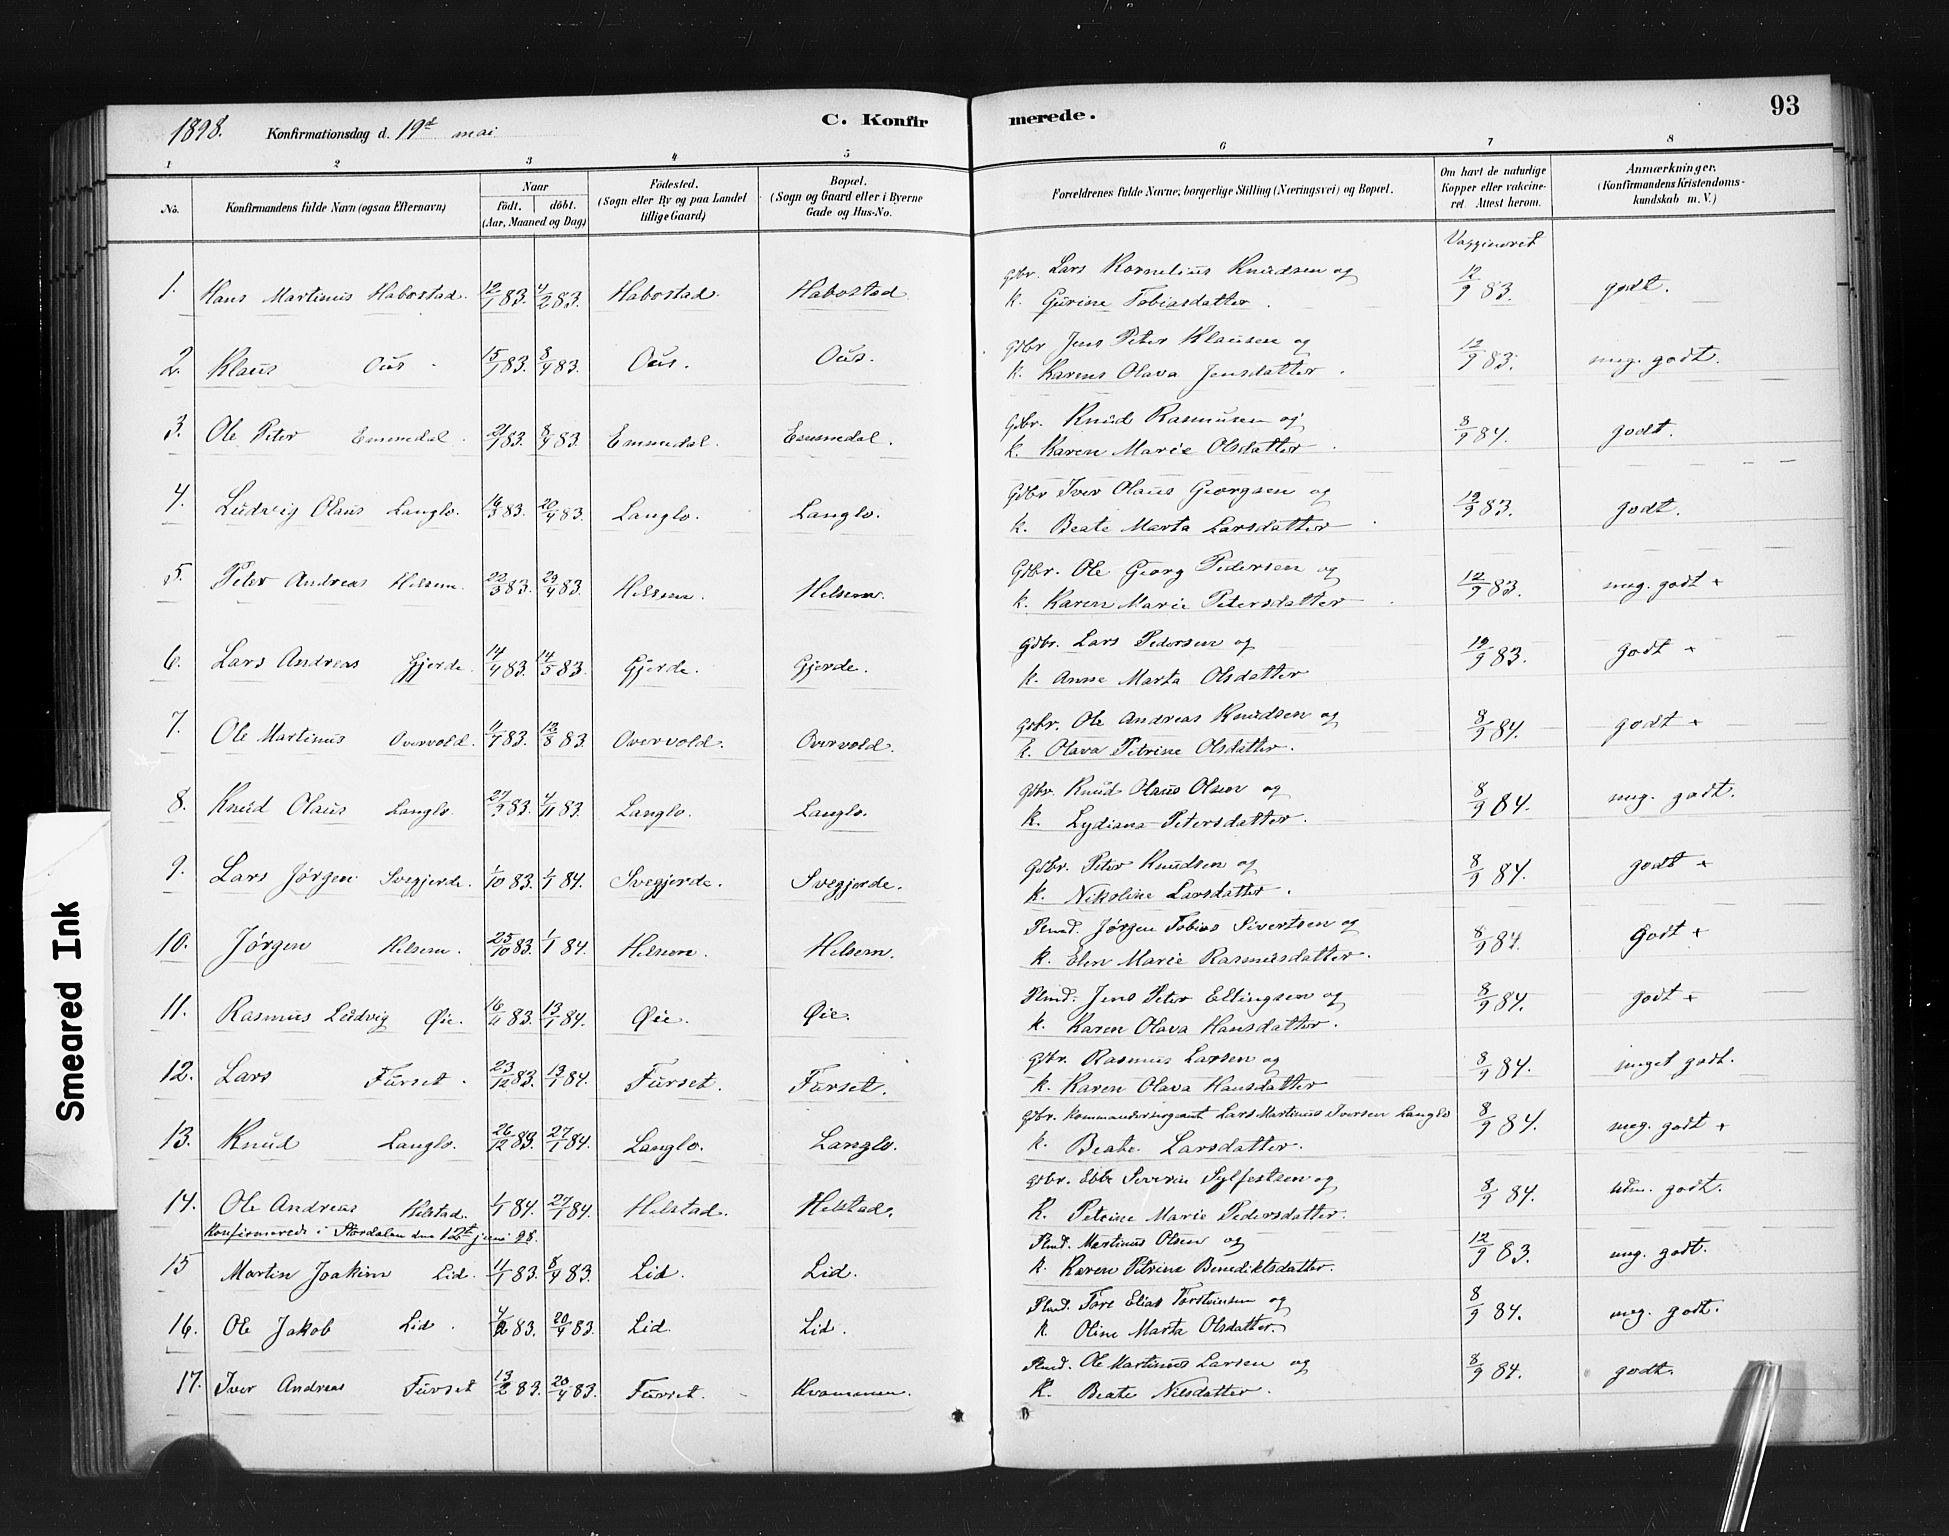 1898. Konfirmationsdag d. 19de mai C. Konfirmerede. 93
1 2 3 4 5 6 7 8
No. Konfirmandens fulde Navn (ogsaa Efternavn) Naar født. døbt. (Aar, Maaned og Dag) Fødested. (Sogn eller By og paa Landet tillige Gaard) Bopæl. (Sogn og Gaard eller i Byerne Gade og Hus-No. Forældrenes fulde Navne, borgerlige Stilling (Næringsvei) og Bopæl. Om havt de naturlige Kopper eller vakcineret. Attest herom. Anmærkninger. (Konfirmandens Kristendomskundskab m. V.)
Vaggineret
1. Hans Martinus Habostad. 12/1 83. 4/2 83. Habostad. Habostad. Gdbr. Lars Kornelius Knudsen og 12/9 83. godt.
k. Gurine Tobiasdatter.
2. Klaus Ous. 15/1 83. 8/4 83. Ous. Ous. Gdbr Jens Peter Klausen og 12/9 83. meg. godt.
k. Karens Olava Jensdatter.
3. Ole Peter Emmedal. 21/1 83. 8/4 83. Emmedal. Emmedal. Gdbr. Knud Rasmusen og 8/9 84. godt.
k. Karen Marie Olsdatter.
4. Ludvig Olaus Langlo. 14/3 83. 20/4 83. Langlo. Langlo. Gdbr Iver Olaus Georgsen og 12/9 83. godt.
k. Beate Marta Larsdatter.
5. Peter Andreas Helsem. 22/3 83. 29/4 83. Helsem. Helsem. Gdbr. Ole Georg Pedersen og 12/9 83. meg. godt +
k. Karen Marie Petersdatter.
6. Lars Andreas Gjerde. 14/4 83. 14/5 83. Gjerde. Gjerde. Gdbr. Lars Pedersen og 12/9 83. godt +
k. Anne Marta Olsdatter
7. Ole Martinus Overvold. 11/7 83. 12/8 83. Overvold. Overvold. Gdbr. Ole Andreas Knudsen og 8/9 84. godt +
k. Olava Petrine Olsdatter.
8. Knud Olaus Langlo. 27/9 83. 4/11 83. Langlo. Langlo. Gdbr. Knud Olaus Olsen og 8/9 84. meg. godt.
k. Lydiana Petersdatter.
9. Lars Jørgen Svegjerde. 1/10 83. 1/1 84. Svegjerde. Svegjerde. Gdbr. Peter Knudsen og 8/9 84. godt +
k. Nikoline Larsdatter.
10. Jørgen Helsem. 25/10 83. 1/1 84. Helsem. Helsem. Plmd. Jørgen Tobias Sivertsen og 8/9 84. Godt +
k. Elen Marie Rasmusdatter.
11. Rasmus Ludvig Øie. 16/11 83. 13/1 84. Øie. Øie. Plmd. Jens Peter Ellingsen og 8/9 84. godt +
k. Karen Olava Hansdatter.
12. Lars Furset. 23/12 83. 13/1 84. Furset. Furset. Gdbr. Rasmus Larsen og 8/9 84. meget godt.
k. Karen Olava Hansdatter
13. Knud Langlo. 26/12 83. 27/1 84. Langlo. Langlo. Gdbr. Kommandersergeant Lars Martinus Iversen Langlo 8/9 84. meg. godt +
k. Beate Larsdatter.
14. Ole Andreas Helstad. 1/1 84. 27/1 84. Helstad. Helstad. Gdbr. Ebbe Severin Sylfestsen og 8/9 84. godt.
k. Petrine Marie Pedersdatter.
Konfirmerede i Stordalen den 12te juni 98.
15 Martin Joakim Lid. 11/1 83. 8/4 83. Lid. Lid. Plmd. Martinus Olsen og 12/9 83. meg. godt.
k. Karen Petrine Benediktsdatter.
16. Ole Jakob Lid. 4/2 83. 20/4 83. Lid. Lid. Plmd. Tore Elias Torsteinsen og 8/9 84. meg. godt.
k. Oline Marta Olsdatter.
17. Iver Andreas Furset 13/2 83. 20/4 83. Furset. Kvammen. Plmd. Ole Martinus Larsen og 8/9 84. godt.
k. Beate Nilsdatter.
Smeared Ink